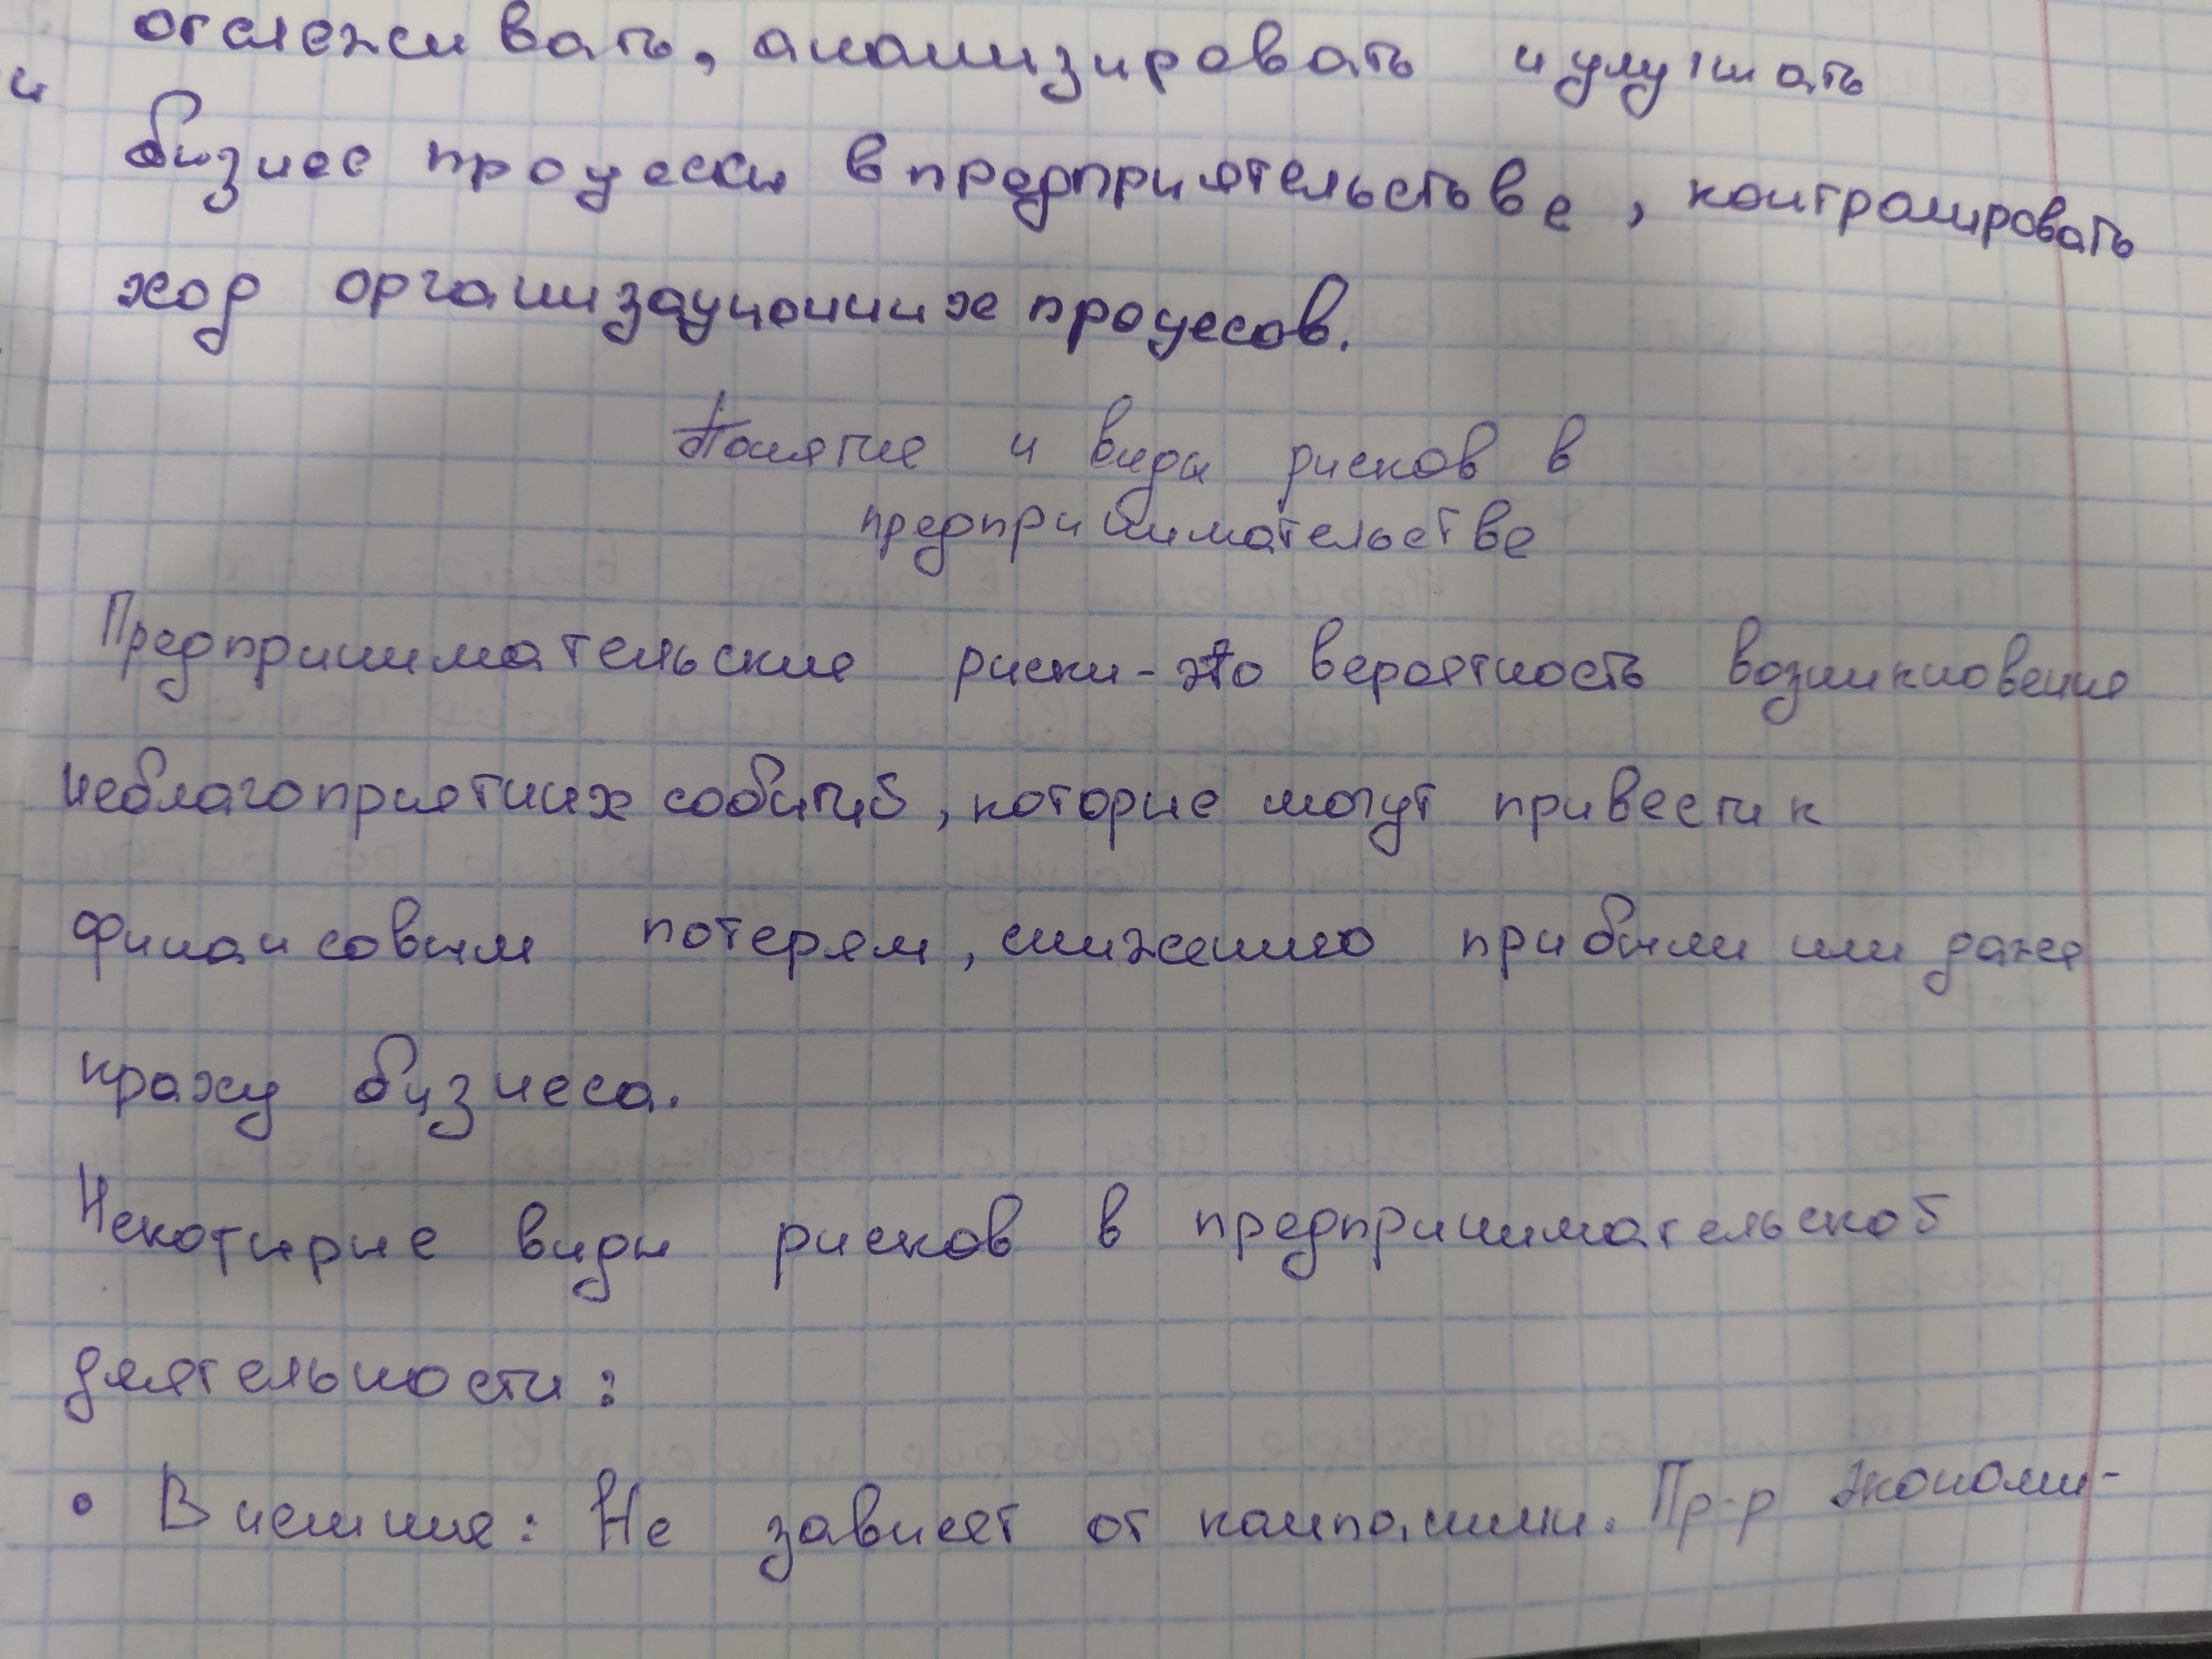 отслеживать, анализировать и улучшать
и
бизнес процессы в предприятельстве, контролировать
ход организационних процесов.
Понятие и виды рисков в
предпринимательстве
Предпринимательские риски-это вероятность возникновение
неблагоприятних событий, которие могут привести к
финансовым потерям, снижению прибыли или даже
краху бизнеса.
Некотирие виды рисков в предпринимательской
деятельности:
• Внешние: Не зависят от компании. Пр-р экономи-